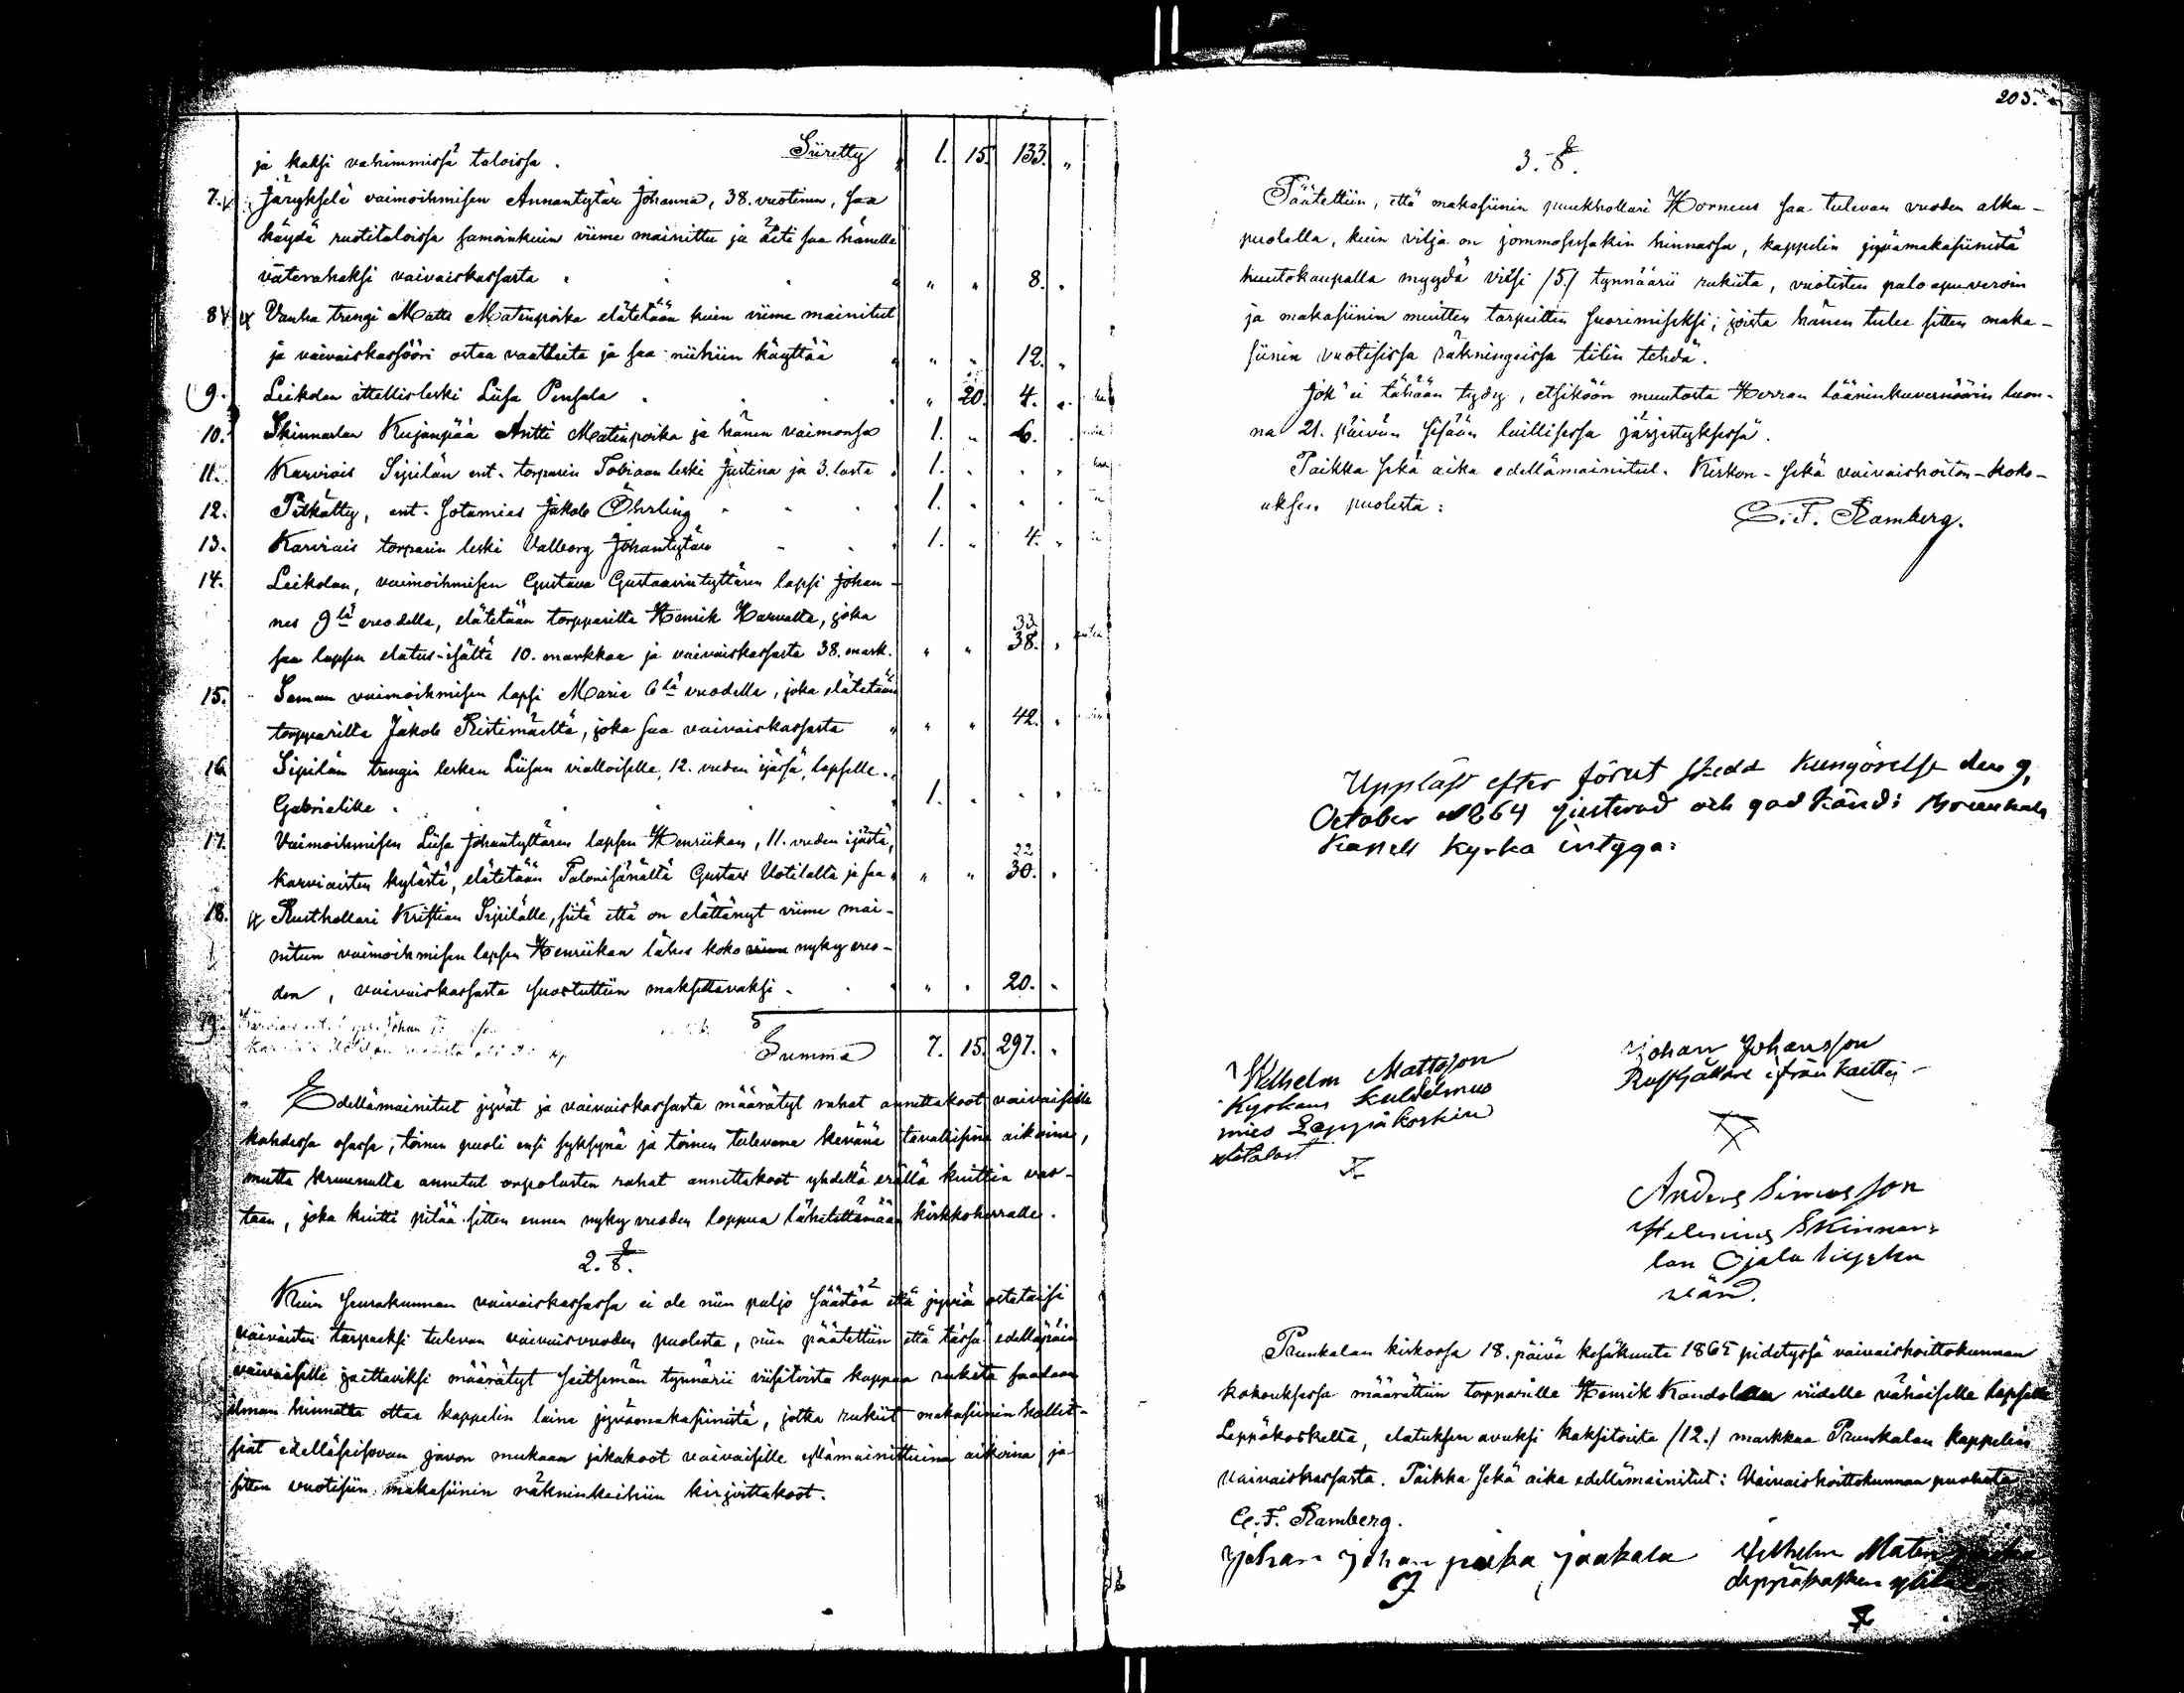 ja kaksi vahimmissä taloissa. Siiretty " 1. 15. 133. "
7. Järykselä vaimoihmisen Annantytär Johanna, 38. vuotinen, saa
käydä ruotitaloissa samoinkuin viime mainittu ja äiti saa hänelle
vaterahaksi vaivaiskassasta " " 8. "
8 Vanha trengi Matts Matinpoika elätetään kuin viime mainitut
ja vaivaiskassööri ostaa vaatteita ja saa niihin käyttää " " 12. "
9. Leikolan ittellisleski Liisa Pensala " 20. 4. "
10. Skinnarlan Kujanpää Antti Matinpoika ja hänen vaimonsa 1. " 6.
11. Karviais Sipilän ent. torparin Tobiaan leski Justina ja 3. lasta 1. " " "
12. Pitkätty, ent. sotamies Jakob Öhrling 1. " " "
13. Karviais torparin leski Valborg Johantytär 1. " 4. "
14. Leikolan, vaimoihmisen Gustava Gustaavintyttären lapsi Johan-
nes 9lä vuodella, elätetään torpparilta Henrik Harvalta, joka
33.
saa lapsen elatus-isältä 10. markkaa ja vaivaiskassasta 38. mark. " " 38. "
15. Saman vaimoihmisen lapsi Maria 6lä vuodella, joka elätetään
torpparilta Jakob Ristimäeltä, joka saa vaivaiskassasta " " 42. "
16. Sipilän trengin lesken Liisan vialloiselle, 12. vuden ijässä, lapselle
Gabrielike 1. " " "
17. Vaimoihmisen Liisa Johantyttären lapsen Henriikan, 11. vuden ijästä,
22
karviaisten kylästä, elätetään Talonisänältä Gustav Uotilalta ja saa " " 30. "
18. Rusthollari Kristian Sipilälle, siitä että on elättänyt viime mai-
nitun vaimoihmisen lapsen Henriikan lähes koko viime nyky vuo-
den, vaivaiskassasta suostuttiin maksettavaksi " " 20. "
19. Johan
Summa 7. 15. 297. "
Edellämainitut jyvät ja vaivaiskassasta määrätyt rahat annettakoot vaivaisille
kahdessa osassa, toinen puoli ensi syksynä ja toinen tulevana kevänä tavallisina aikoina,
mutta kruunulta annetut orpolasten rahat annettakoot yhdellä erällä kuittia vas-
taan, joka kuitti pitää sitten ennen nyky vuoden loppua lähetettämään kirkkoherralle.
2. §.
Kuin seurakunnan vaivaiskassassa ei ole niin paljo säästöä että jyviä ostetaisi
vaivaisten tarpeeksi tulevan vaivaisvuoden puolesta, niin päätettiin että tässä edelläpäin
vaivaisille jaettaviksi määrätyt seitsemän tynnärii viisitoista kappaa rukeita saadaan
ilman hinnatta ottaa kappelin laina jyväinmakasiinistä, jotka rukiit makasiinin hallit-
siat edelläseisovan javon mukaan jakakoot vaivaisille ylämainittuina aikoina ja
sitten vuotisiin makasiinin räkninkeihiin kirjoittakoot.
203.
3. §.
Päätettiin, että makasiinin puukhollari Horneus saa tulevan vuoden alku-
puolella, kuin vilja on jommosessakin hinnassa, kappelin jyvämakasiinistä
huutokaupalla myydä viisi /5/ tynnäärii rukiita, vuotisten palo apuveroin
ja makasiinin muitten tarpeitten suorimiseksi; joista hänen tulee sitten maka-
siinin vuotisissa räkningeissa tilin tehdä.
Jok' ei tähään tydy, etsiköön muutosta Herran Lääninkuvernöörin luon-
na 21. päivän sisään laillisessa järjestyksessä.
Paikka sekä aika edellämainitut. Kirkon- sekä vaivaishoiton-koko-
uksen puolesta:
C. F. Ramberg.
Uppläst efter förut skedd kungörelse den 9
October 1864 justerad och godkänd;
Kapell Kyrka intyga:
Wilhelm Mattsson
Kyrkans Kuldelmus
mies Leppäkosken
Johan Johansson
Rusthållare ifrån Kaitti
Anders Simosson
Helenius Skinnar-
lan Ojala kyrko
värd.
Prunkalan kirkossa 18. päivä kesäkuuta 1865 pidetyssä vaivaishoittokunnan
kokouksessa määrättiin torpparille Henrik Kandolan viidelle vähäiselle lapselle
Leppäkoskelta, elatuksen avuksi kaksitoista /12./ markkaa Prunkalan kappelin
vaivaiskassasta. Paikka sekä aika edellämainitut: Vaivaishoittokunnan puolesta
C. F. Ramberg.
Johan Johan poika Jaakala
Wilhelm Matin
Leppäkosken